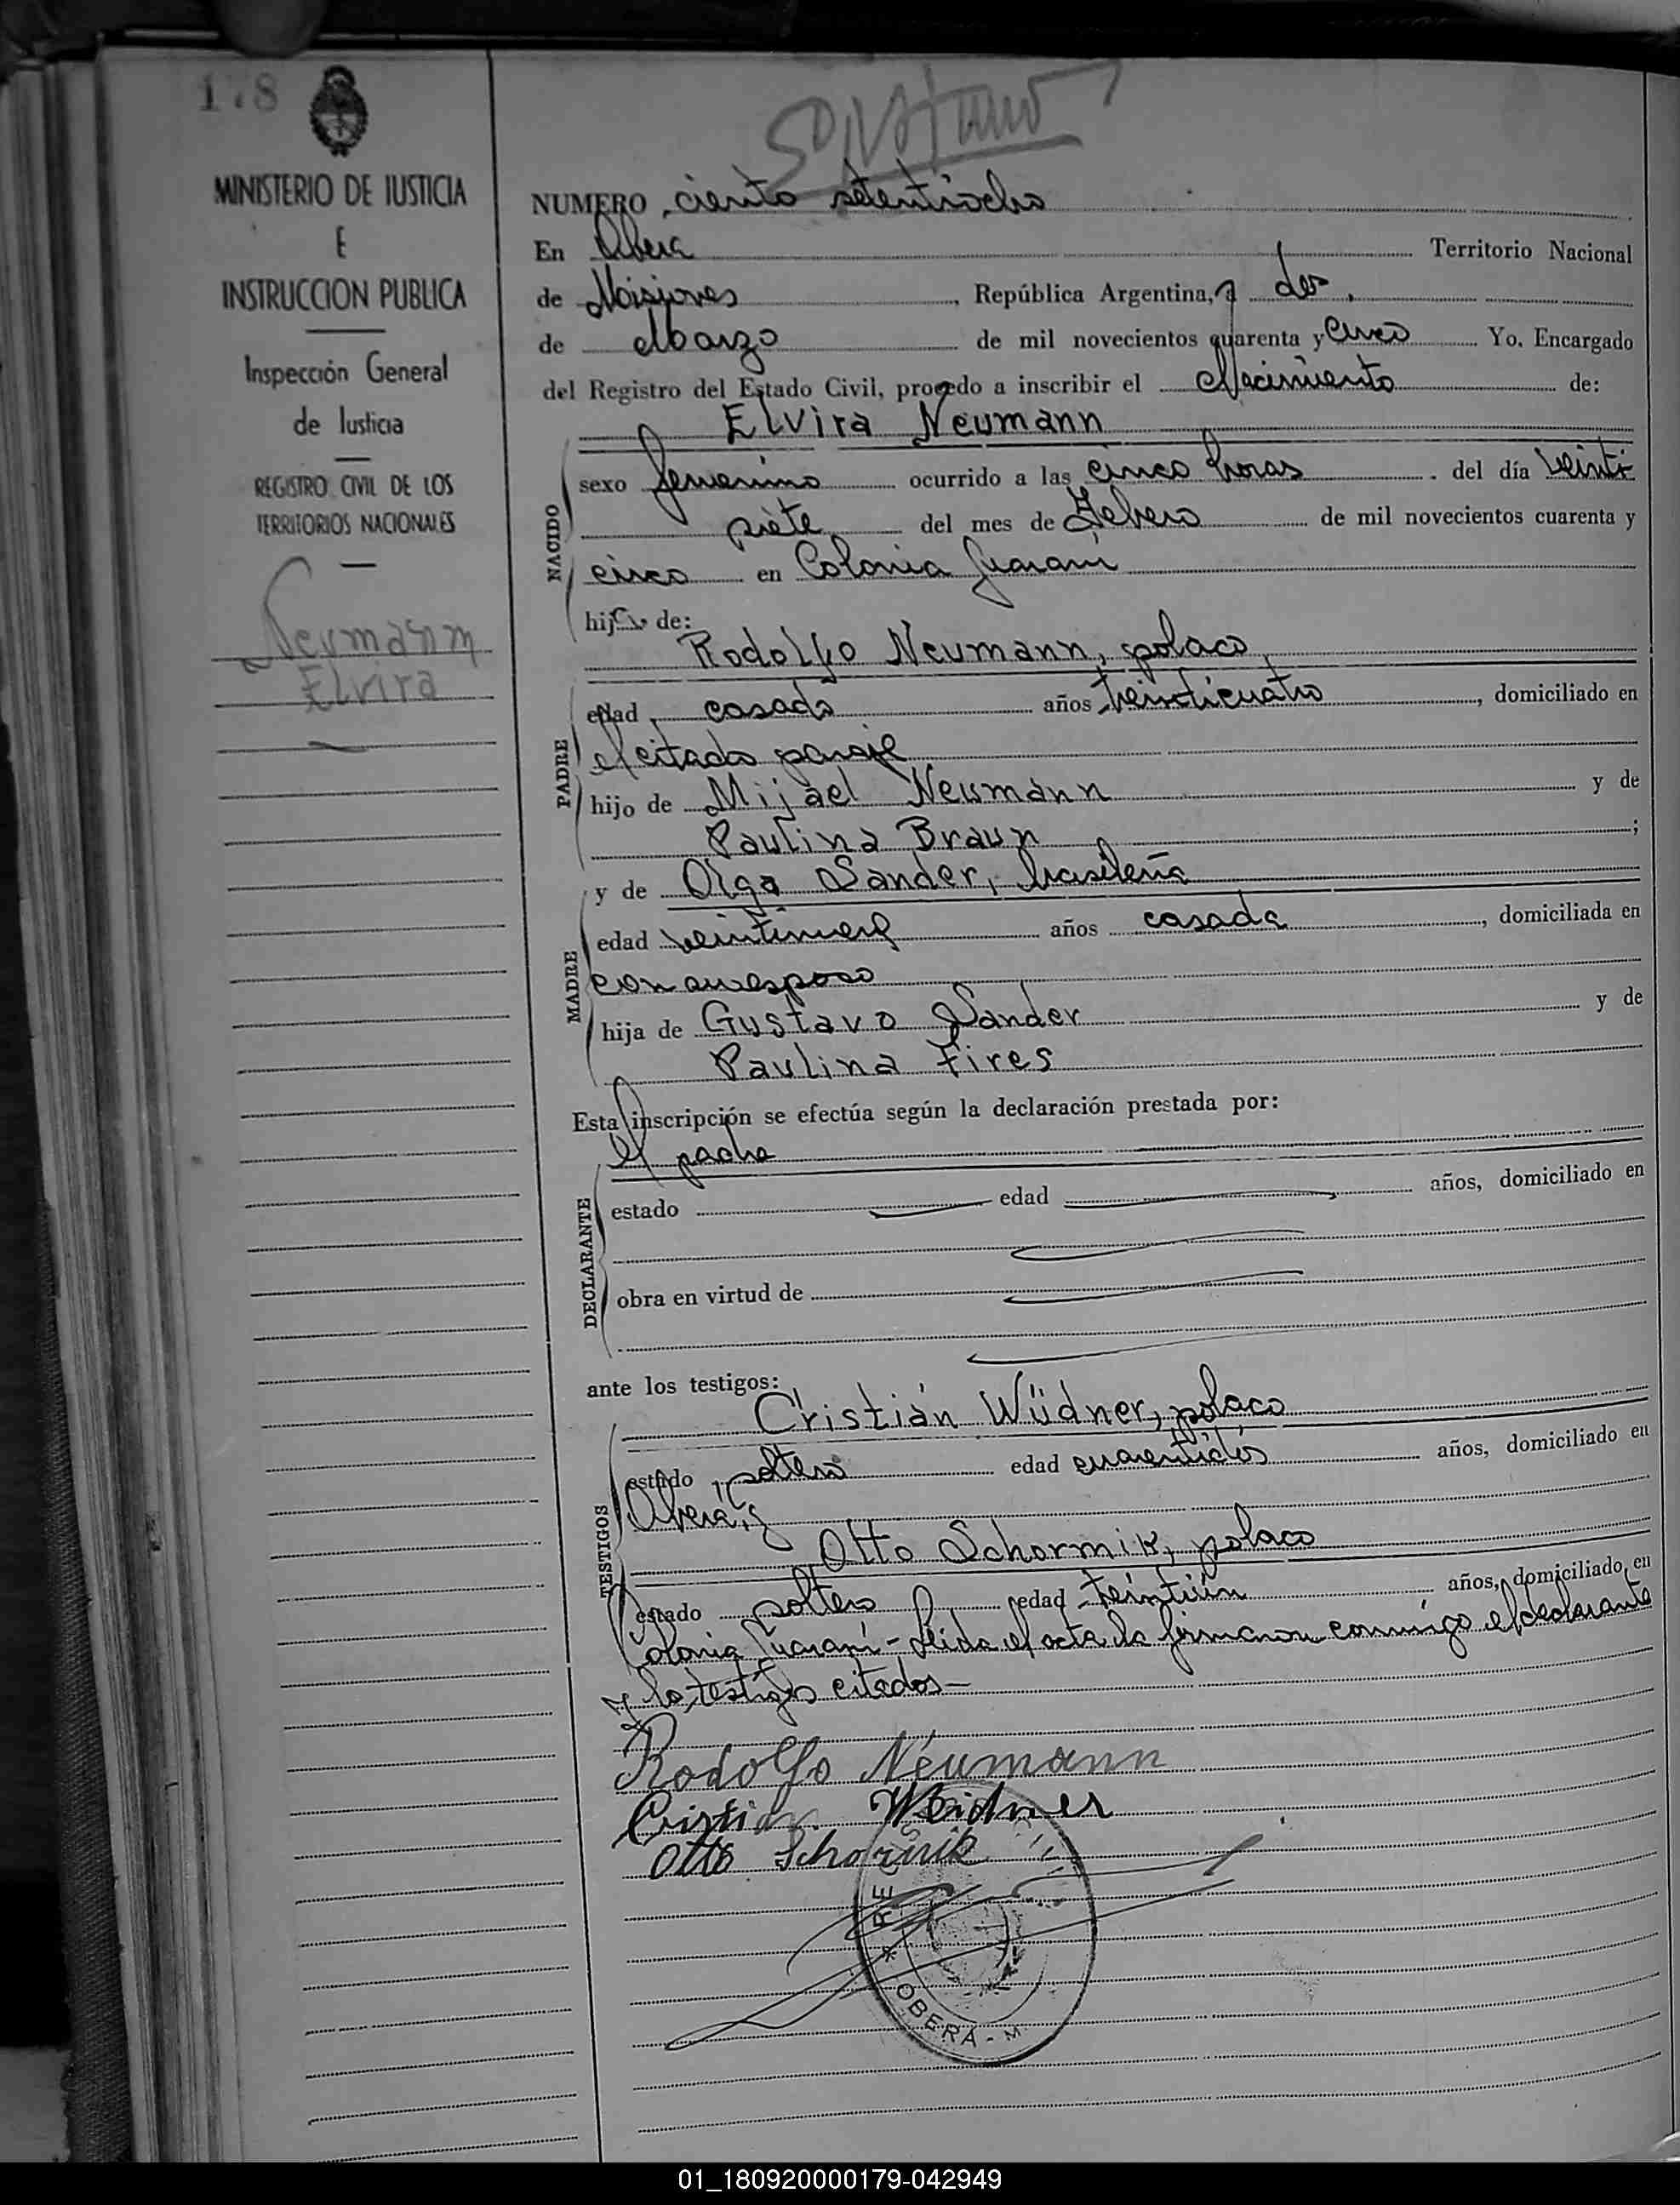 178
MINISTERIO DE JUSTICIA
E
INSTRUCCION PUBLICA
Inspección General
de Justicia
REGISTRO CIVIL DE LOS
TERRITORIOS NACIONALES
Neumann
Elvira
NUMERO ciento setentiocho
En Oberá Territorio Nacional
de Misiones, República Argentina, a dos
de Marzo de mil novecientos cuarenta y cinco Yo, Encargado
del Registro del Estado Civil, procedo a inscribir el Nacimiento de:
Elvira Neumann
NACIDO
sexo femenino ocurrido a las cinco horas del día veinti
siete del mes de Febrero de mil novecientos cuarenta y
cinco en Colonia Guaraní
hija de:
Rodolfo Neumann, polaco,
PADRE
edad, casado años treinticuatro, domiciliado en
el citado paraje
hijo de Mijael Neumann y de
Paulina Braun;
y de Olga Sander, brasileña
MADRE
edad veintinueve años casada, domiciliada en
con su esposo
hija de Gustavo Sander y de
Paulina Fires
Esta inscripción se efectúa según la declaración prestada por:
el padre
DECLARANTE
estado edad años, domiciliado en
obra en virtud de
ante los testigos:
Cristián Wüdner, polaco
TESTIGOS
estado, soltero edad cuarentidós años, domiciliado en
Oberá, y
Otto Schormik, polaco
estado soltero edad treintiún años, domiciliado en
Colonia Guaraní - Leida el acta la firmaron conmigo el declarante
y los testigos citados -
Rodolfo Neumann
Cristian Weidner
Otto Schormik
RE
* OBERÁ - M.
01_180920000179-042949